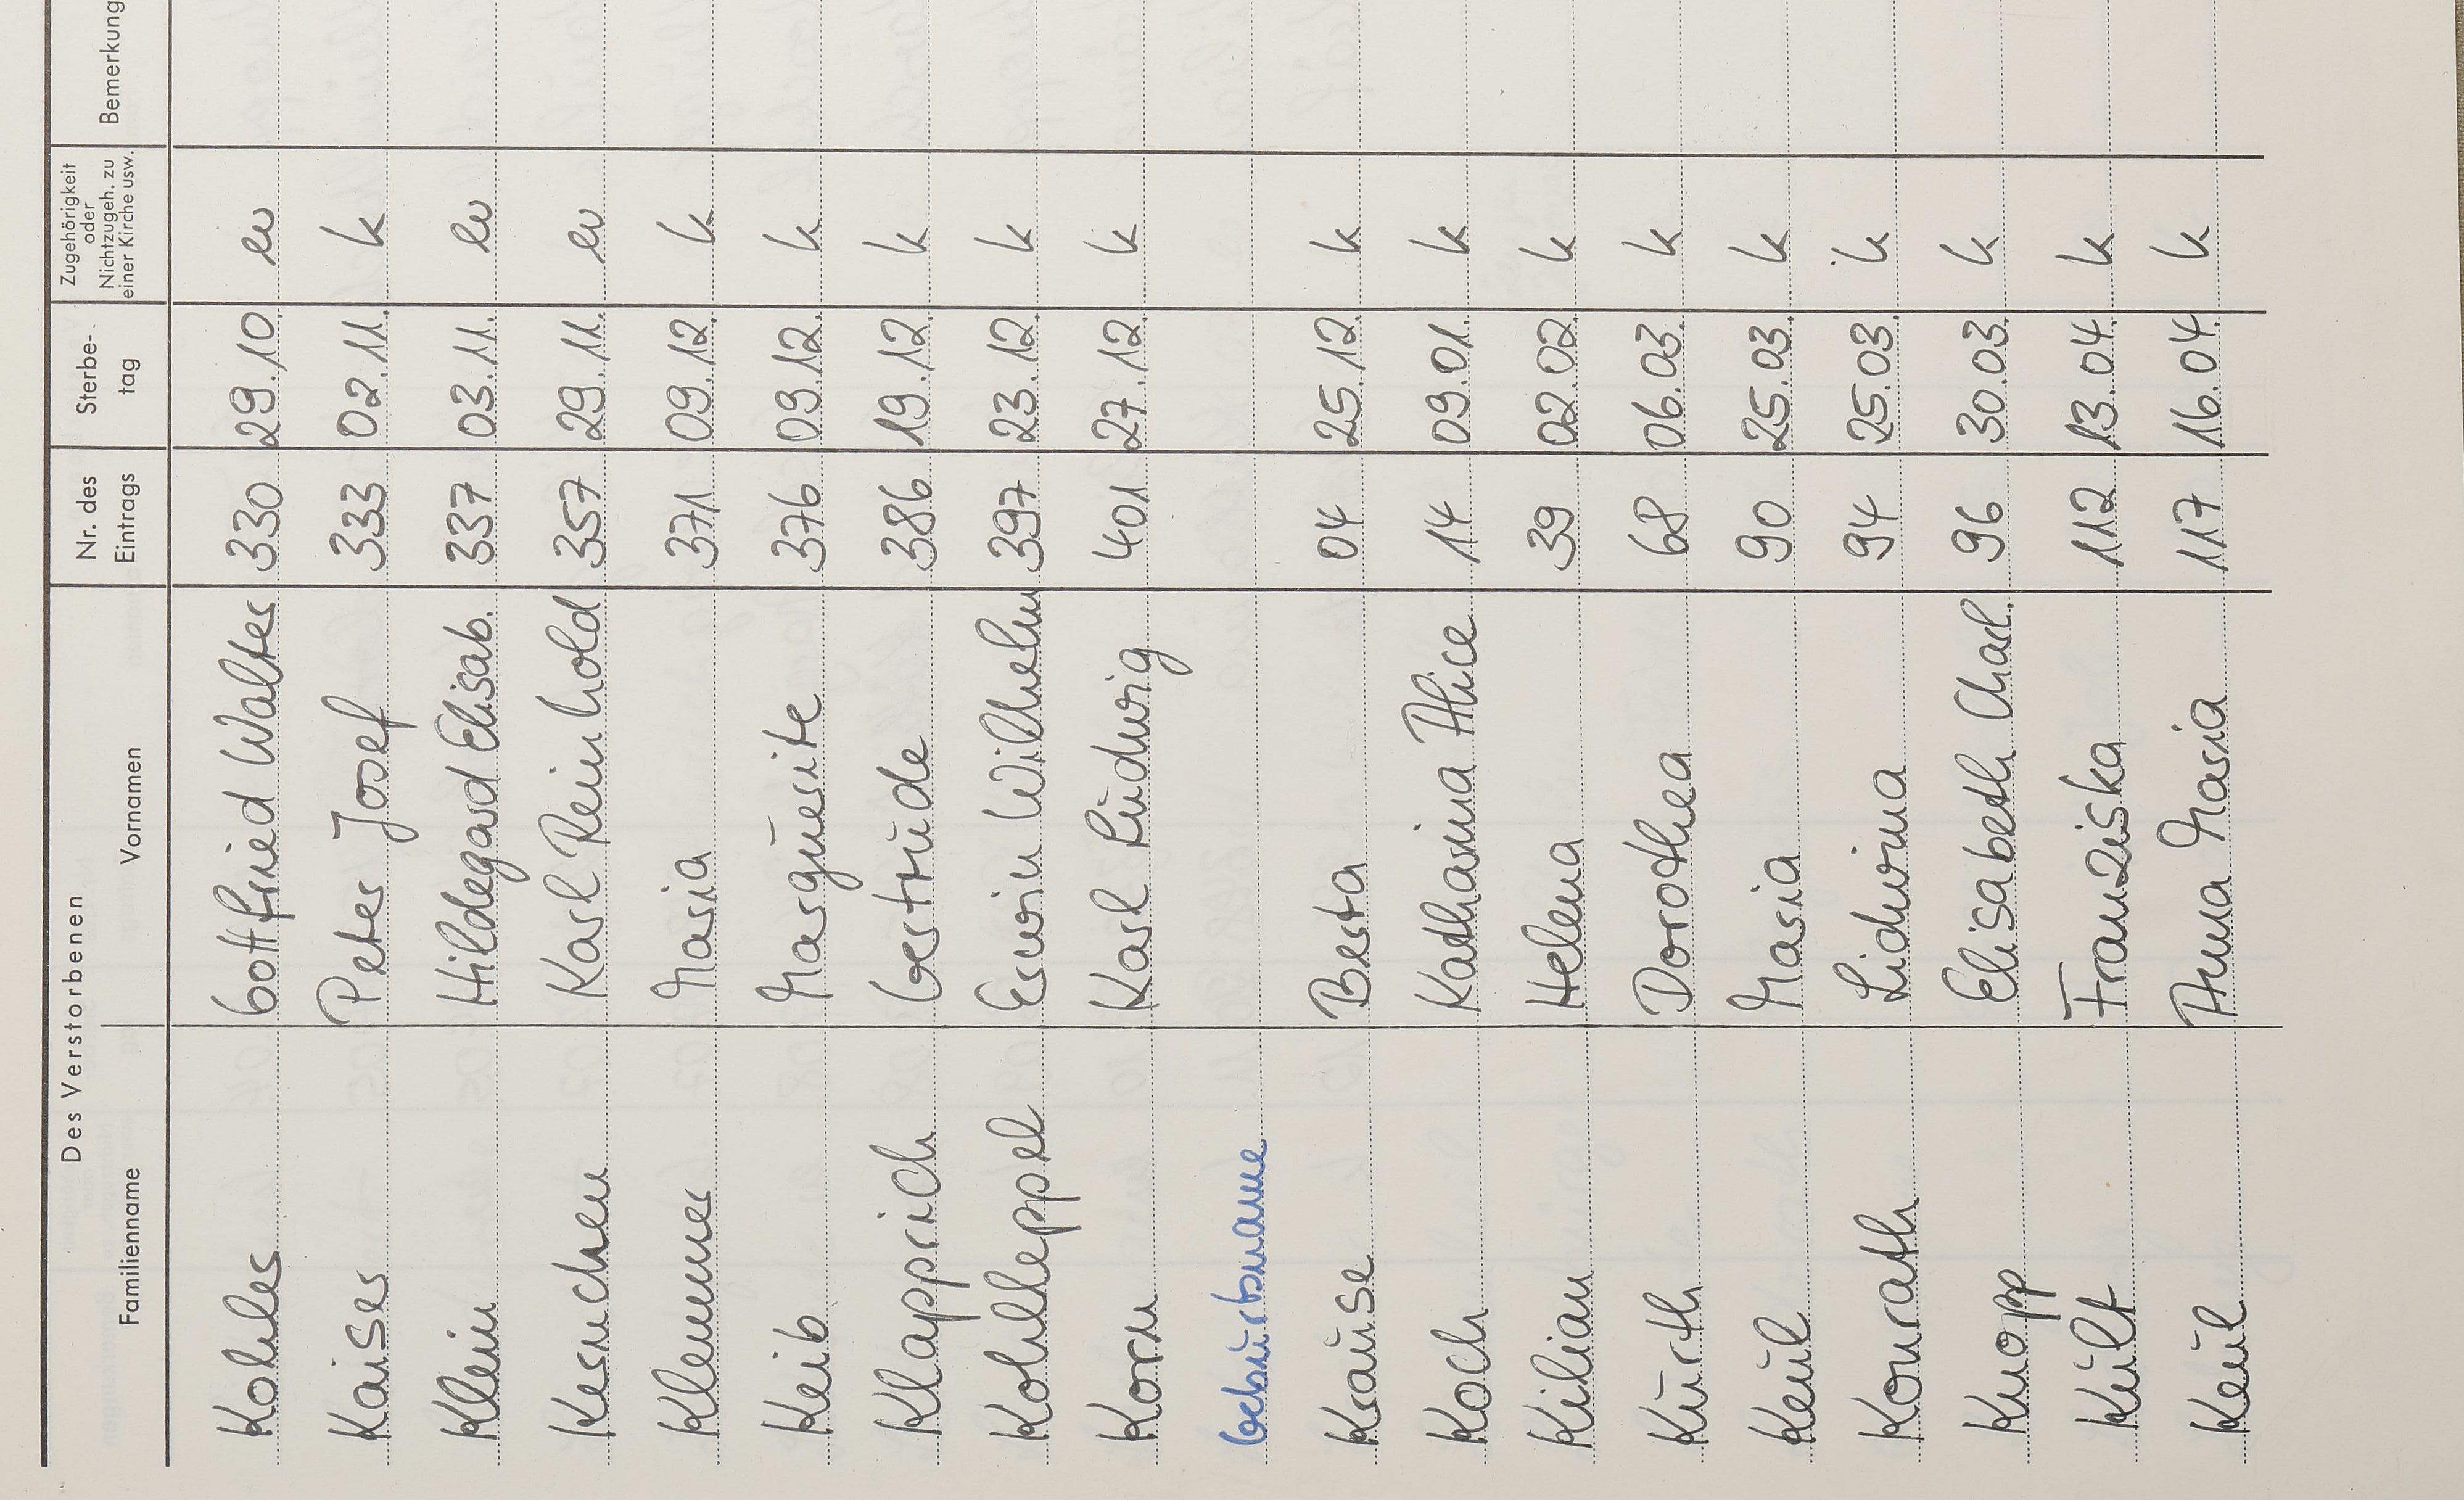 Des Verstorbenen
Familienname Vornamen Nr. des Eintrags Sterbe-tag Zugehörigkeit oder Nichtzugeh. zu einer Kirche usw. Bemerkung
Kohler Gottfried Walter 330 29.10. ev
Kaiser Peter Josef 333 02.11. k
Klein Hildegard Elisab. 337 03.11. ev
Kernchen Karl Reinhold 357 29.11. ev
Klemmer Maria 371 09.12. k
Keib Marguerite 376 09.12. k
Klapprich Gertrude 386 19.12. k
Kohlleppel Erwin Wilhelm 397 23.12. k
Korn Karl Ludwig 401 27.12. k
Geburtsname
Krause Berta 04 25.12. k
Koch Katharina Alice 14 09.01. k
Kilian Helena 39 02.02. k
Kurth Dorothea 68 06.03. k
Keul Maria 90 25.03. k
Konrath Lidwina 94 25.03. k
Knopp Elisabeth Charl. 96 30.03. k
Kult Franziska 112 13.04. k
Keul Anna Maria 117 16.04. k